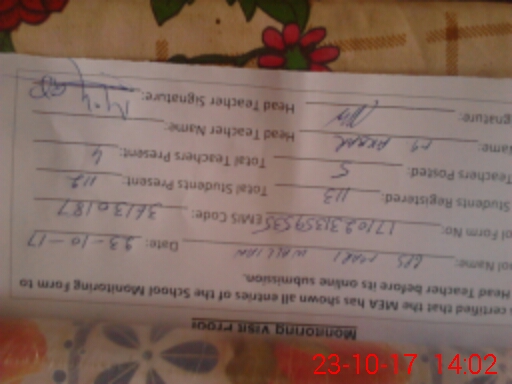 Monitoring Visit Proof
s certified that the MEA has shown all entries of the School Monitoring Form to
Head Teacher before its online submission.
ool Name: GPS WALLIAN Date: 23-10-17
ol Form No: 171023135953S EMIS Code: 36130187
Students Registered: 113 Total Students Present: 112
Teachers Posted: 5 Total Teachers Present: 4
Name: M Head Teacher Name:
gnature: Head Teacher Signature:
23-10-17 14:02